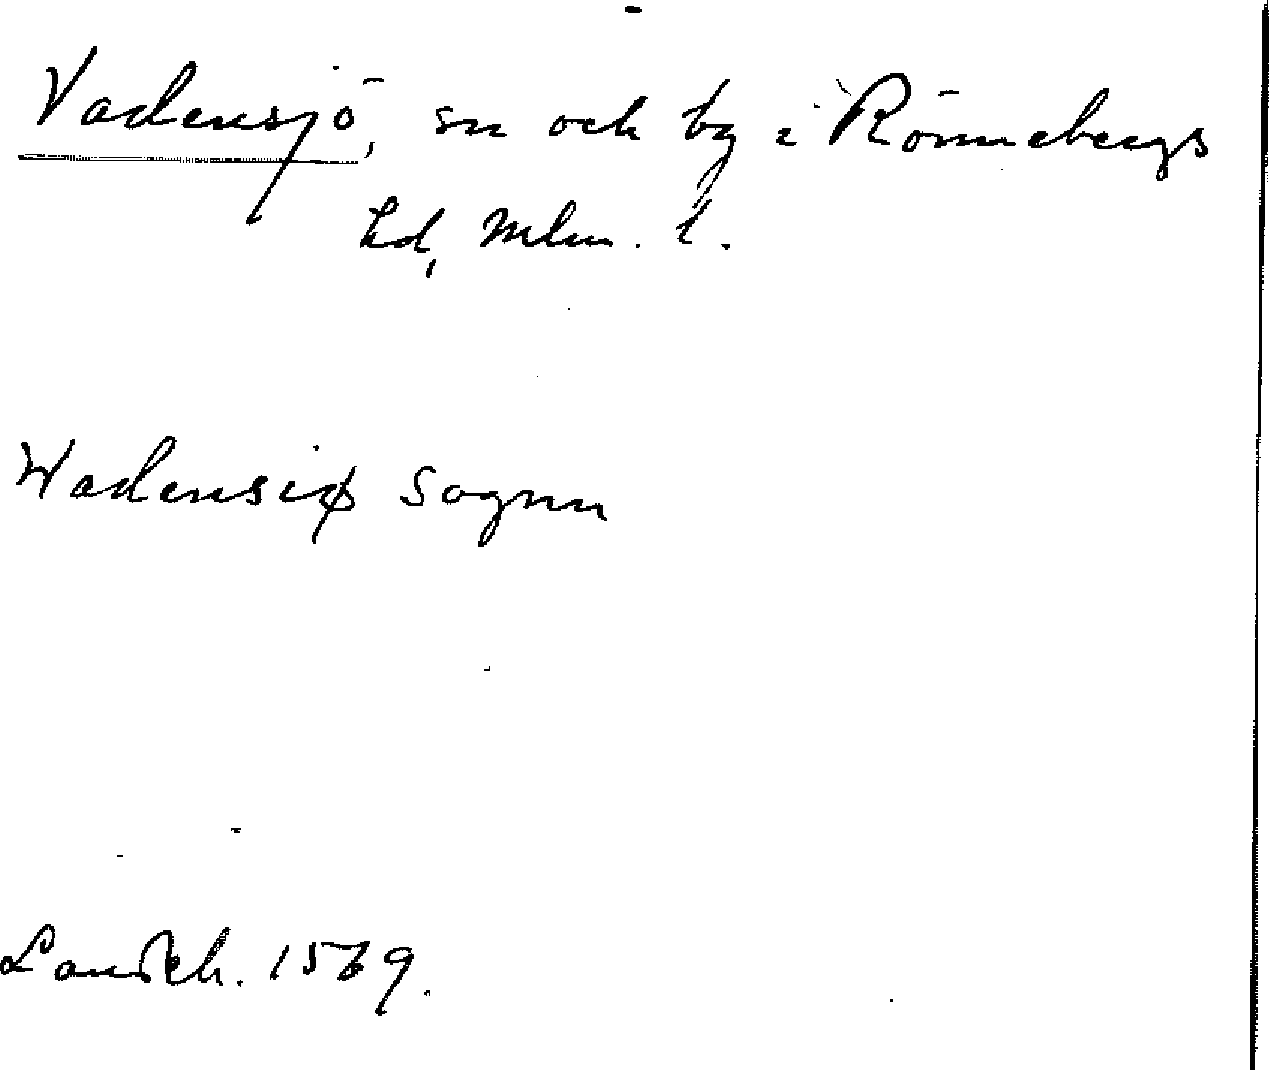 Vadensjö, sn och by i Rönnebergs
hd, Mlm. l.
Wadensiø Sognn
Landsk. 1569.